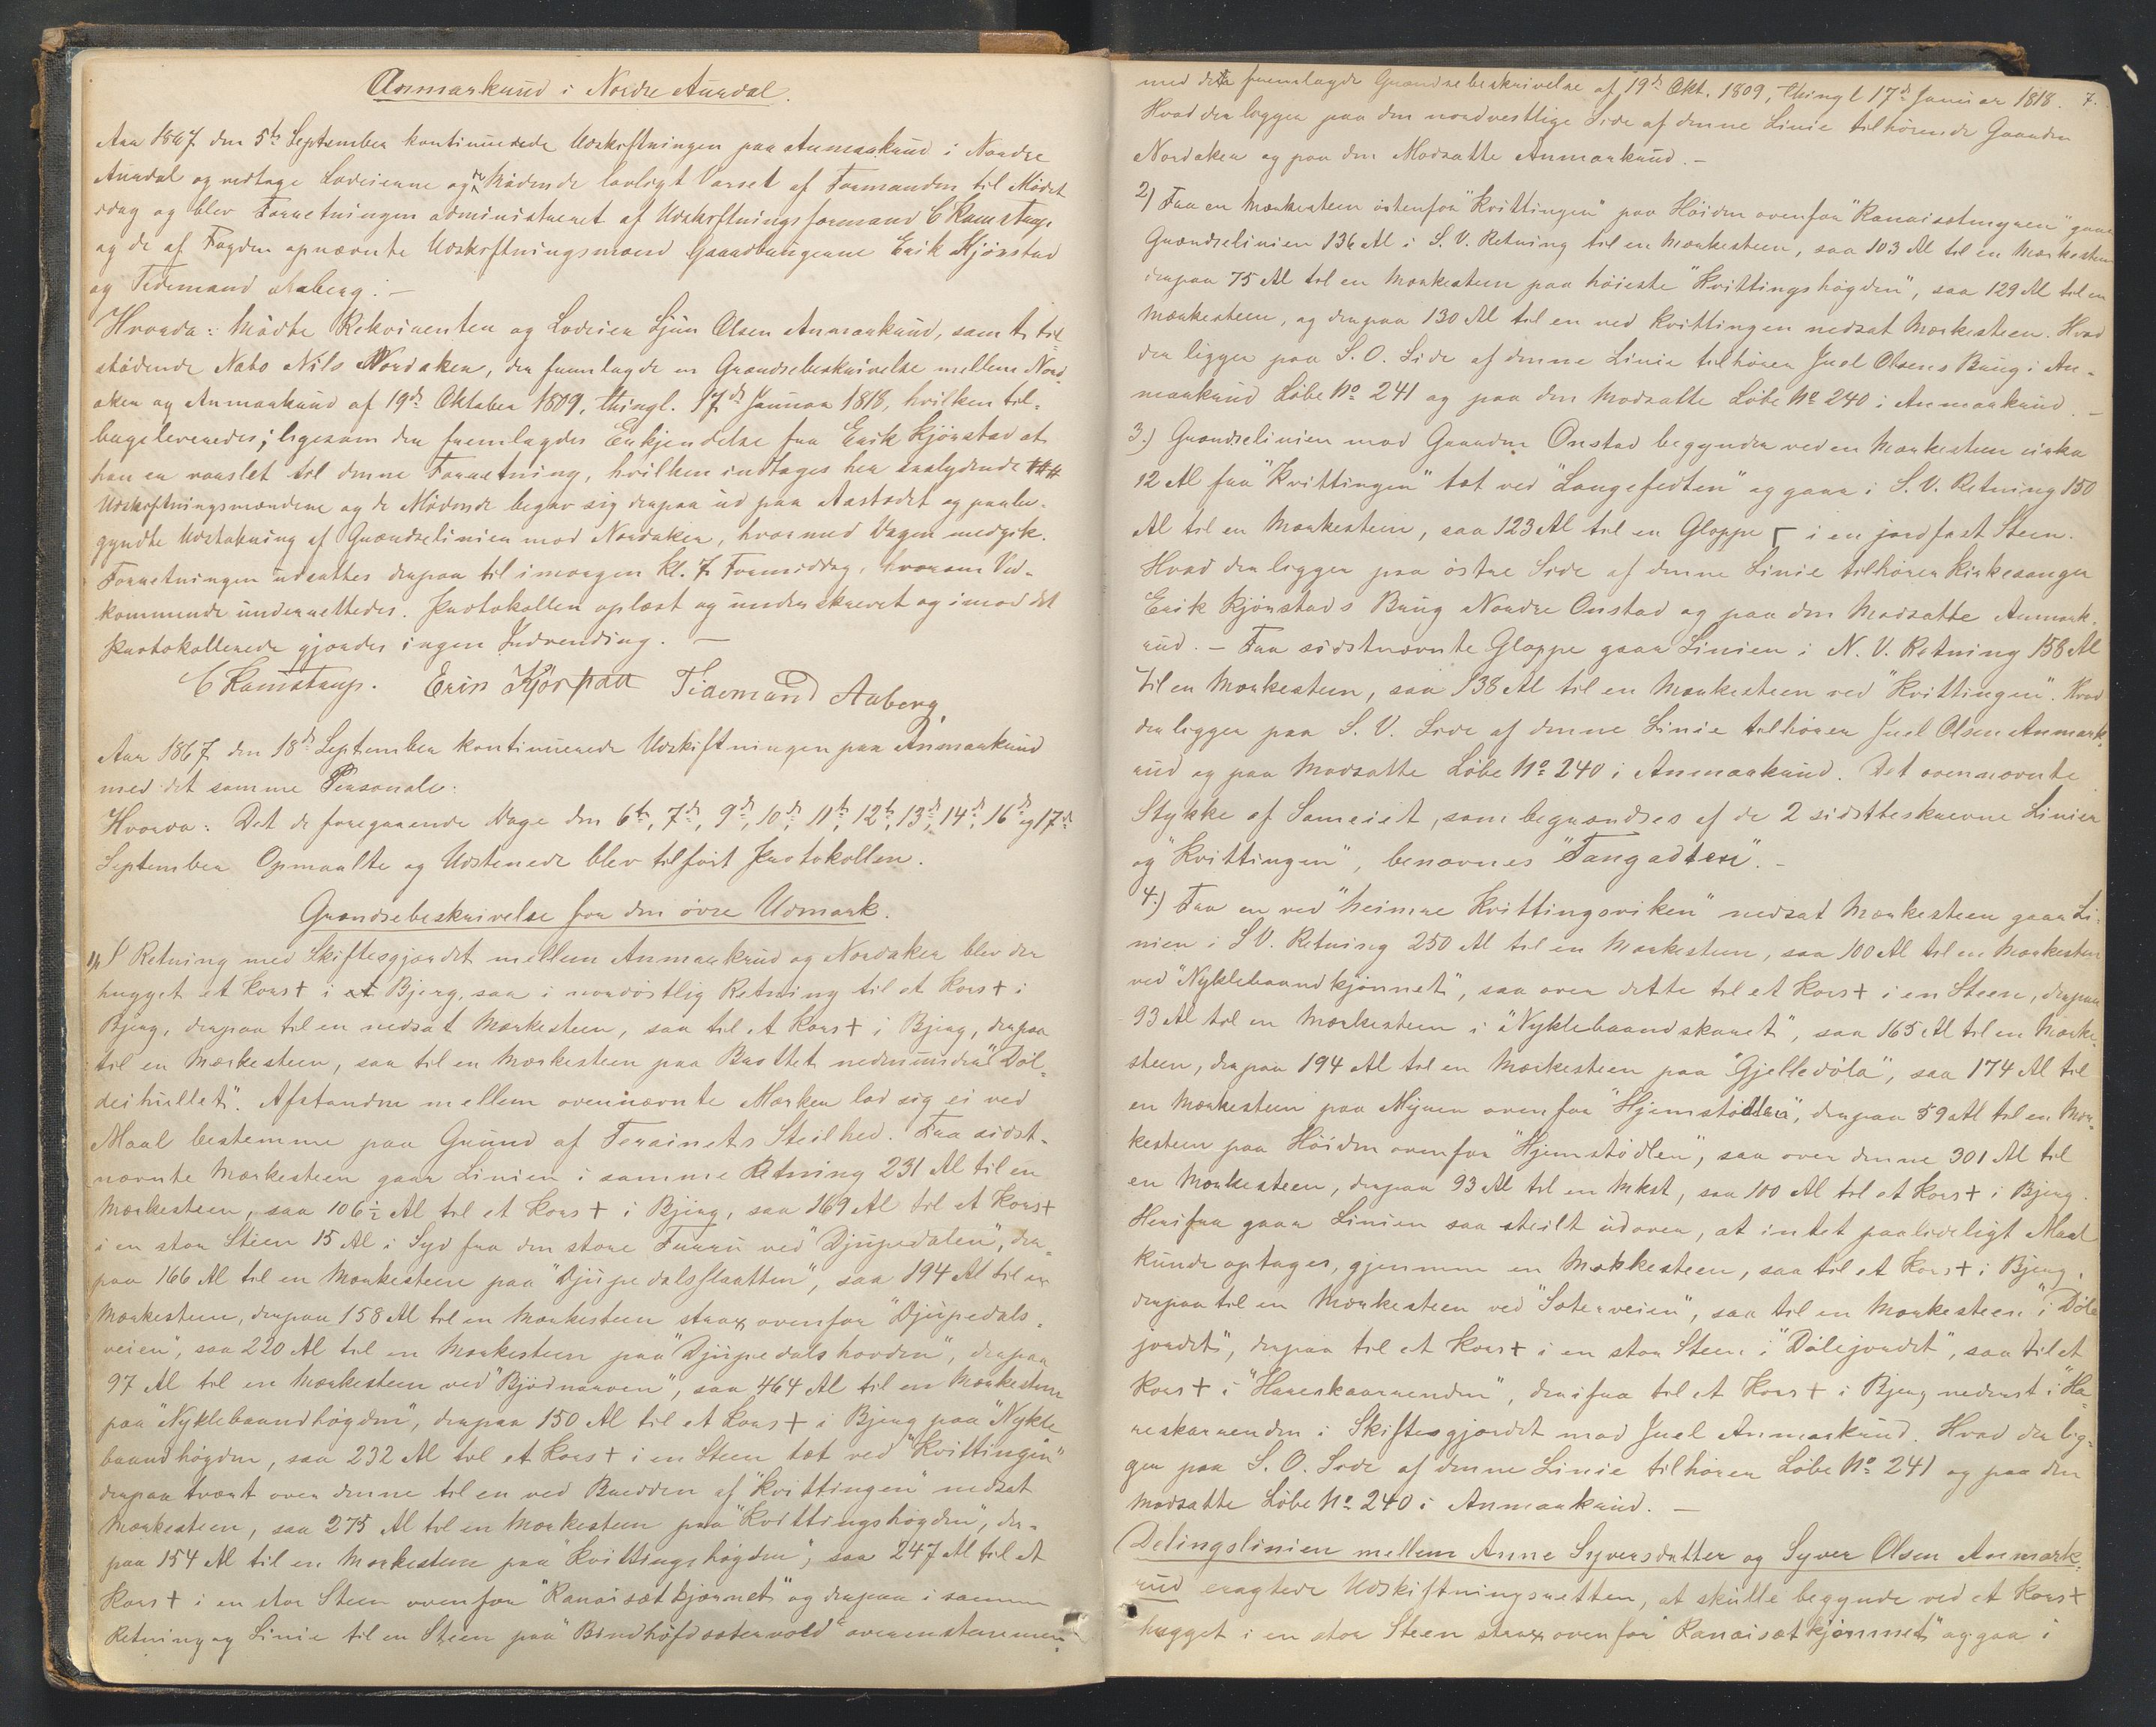 Anmarkrud i Nordre Aurdal.
Aar 1867 den 5te September kontinuerede Udskiftningen paa Anmarkrud i Nordre
Aurdal og vedtoge Lodeierne og de Mödende lovligt Varsel af Formanden til Mödet
idag og blev Forretningen administreret af Udskiftningsformand C Ramstrup
og de af Fogden opnævnte Udskiftningsmænd Gaardbrugerne Erik Kjörstad
og Tidemand Aaberg: —
Hvorda: Mödte Rekvirenten og Lodeier Sjur Olsen Anmarkrud, samt de til-
stödende Nabo Nils Nordaker, der fremlagde en Grændsebeskrivelse mellem Nord-
aker og Anmarkrud af 19de Oktober 1809, thingl. 17de Januar 1818, hvilken til-
bageleveredes; ligesom der fremlagdes Erkjendelse fra Erik Kjörstad at
han er varslet til denne Forretning, hvilken indtages her saalydende ###
Udskiftningsmændene og de Mödende begav sig derpaa ud paa Aastedet og paabe-
gyndte Udstakning af Grændselinien mod Nordaker, hvormed Dagen medgik.
Forretningen udsattes derpaa til imorgen Kl. 7 Formiddag, hvorom Ved-
kommende underrettedes. Protokollen oplæst og underskrevet og imod det
Protokollerede gjordes ingen Indvending. —
C Ramstrup. Erik Kjörstad Tidemand Aaberg,
Aar 1867 den 18de September kontinuerede Udskiftningen paa Anmarkrud
med det samme Personale:
Hvorda: Det de foregaaende Dage den 6te, 7de, 9de, 10de, 11te, 12te, 13de, 14de, 16de og 17de
September Opmaalte og Udstenede blev tilfört Protokollen.
Grændsebeskrivelse for den övre Udmark.
1, I Retning med Skiftesgjærdet mellem Anmarkrud og Nordaker blev der
hugget et Kors + i et Bjerg, saa i nordöstlig Retning til et Kors + i
Bjerg, derpaa til en nedsat Mærkesteen, saa til et Kors + i Bjerg, derpaa
til en Mærkesteen, saa til en Mærkesteen paa Brottet nedenunder "Döl-
deihullet". Afstanden mellem ovennævnte Mærker lod sig ei ved
Maal bestemme paa Grund af Terainets Steilhed. Fra sidst-
nævnte Mærkesteen gaar Linien i samme Retning 231 Al til en
Mærkesteen, saa 106½ Al til et Kors + i Bjerg, saa 169 Al til et Kors +
i en stor Steen 15 Al i Syd fra den store Furru ved "Djupedalen", der-
paa 166 Al til en Mærkesteen paa "Djupedalsflaatten", saa 194 Al til en
Mærkesteen, derpaa 158 Al til en Mærkesteen strax ovenfor "Djupedals-
veien", saa 220 Al til en Mærkesteen paa "Djupedalshovden", derpaa
97 Al til en Mærkesteen ved "Björnarven", saa 464 Al til en Mærkesteen
paa "Nyklebaandhögden", derpaa 150 Al til et Kors + i Bjerg paa "Nykle-
baandhögden, saa 232 Al til et Kors + i en Steen tæt ved "Kvittingen"
derpaa tvært over denne til en ved Bredden af "Kvittingen" nedsat
Mærkesteen, saa 275 Al til en Mærkesteen paa "Kvittingshögden", der-
paa 154 Al til en Mærkesteen paa "Kvittingshögden", saa 247 Al til et
Kors + i en stor Steen ovenfor "Ranaisætkjærnet" og derpaa i samme
Retning og Linie til en Steen paa "Bondhöfdsætervold" overensstemmen-
med dette fremlagde Grændsebeskrivelse af 19de Okt. 1809, thingl 17de Januar 1818. 7.
Hvad der ligger paa den nordvestlige Side af denne Linie tilhörende Gaarden
Nordaker og paa den Modsatte Anmarkrud. —
2) Fra en Mærkesteen östenfor "Kvittingen" paa Höiden ovenfor "Ranaisætmyren" gaar
Grændselinien 136 Al i S. V. Retning til en Mærkesteen, saa 103 Al til en Mærkesteen
derpaa 75 Al til en Mærkesteen paa höieste "Kvittingshögden", saa 129 Al til en
Mærkesteen, og derpaa 130 Al til en ved Kvittingen nedsat Mærkesteen. Hvad
der ligger paa S. O. Side af denne Linie tilhörer Juel Olsens Brug i An-
markrud Löbe No 241 og paa den Modsatte Löbe No 240 i Anmarkrud. —
3.) Grændselinien mod Gaarden Onstad begynder ved en Mærkesteen cirka
12 Al fra "Kvittingen" tæt ved "Langefedten" og gaar i S. V. Retning 150
Al til en Mærkesteen, saa 123 Al til en Gloppe ┌ i en jordfast Steen.
Hvad der ligger paa östre Side af denne Linie tilhörer Kirkesanger
Erik Kjörstads Brug Nordre Onstad og paa den Modsatte Anmark-
rud. — Fra sidstnævnte Gloppe gaar Linien i N. V. Retning 158 Al
til en Mærkesteen, saa 138 Al til en Mærkesteen ved "Kvittingen". Hvad
der ligger paa S. V. Side af denne Linie tilhörer Juel Olsen Anmark-
rud og paa Modsatte Löbe No 240 i Anmarkrud. Det ovennævnte
Stykke af Sameiet, som begrændses af de 2 sidstbeskrevne Linier
og "Kvittingen", benævnes "Tangadten". —
4.) Fra en ved "heimre Kvittingsviken" nedsat Mærkesteen gaar Li-
nien i S V. Retning 250 Al til en Mærkesteen, saa 100 Al til en Mærkesteen
ved "Nyklebaandkjönnet", saa over dette til et Kors + i en Steen, derpaa
93 Al til en Mærkesteen i "Nyklebaandskaret", saa 165 Al til en Mærke-
steen, derpaa 194 Al til en Mærkesteen paa "Gjelledöla", saa 174 Al til
en Mærkesteen paa Myren ovenfor "Hjemstödlen", derpaa 59 Al til en Mær-
kesteen paa Höiden ovenfor "Hjemstödlen", saa over denne 301 Al til
en Mærkesteen, derpaa 93 Al til en Mkst, saa 100 Al til et Kors + i Bjerg.
Herifra gaar Linien saa steilt udover, at intet paalideligt Maal
kunde optages, gjennem en Mærkesteen, saa til et Kors + i Bjerg,
derpaa til en Mærkesteen ved "Sæterveien", saa til en Mærkesteen i "Döle
jordet", derpaa til et Kors + i en stor Steen i "Dölejordet", saa til et
Kors + i "Hareskaarrenden", derifra til et Kors + i Bjerg nederst i "Ha-
reskarrenden i Skiftesgjærdet mod Juel Anmarkrud. Hvad der lig-
ger paa S. O. Side af denne Linie tilhörer Löbe No 241 og paa den
Modsatte Löbe No 240 i Anmarkrud. —
Delingslinien mellem Anne Syversdatter og Syver Olsen Anmark-
rud eragtede Udskiftningsretten, at skulle begynde ved et Kors +
hugget i en stor Steen strax ovenfor "Ranaisætkjönnet" og gaa i